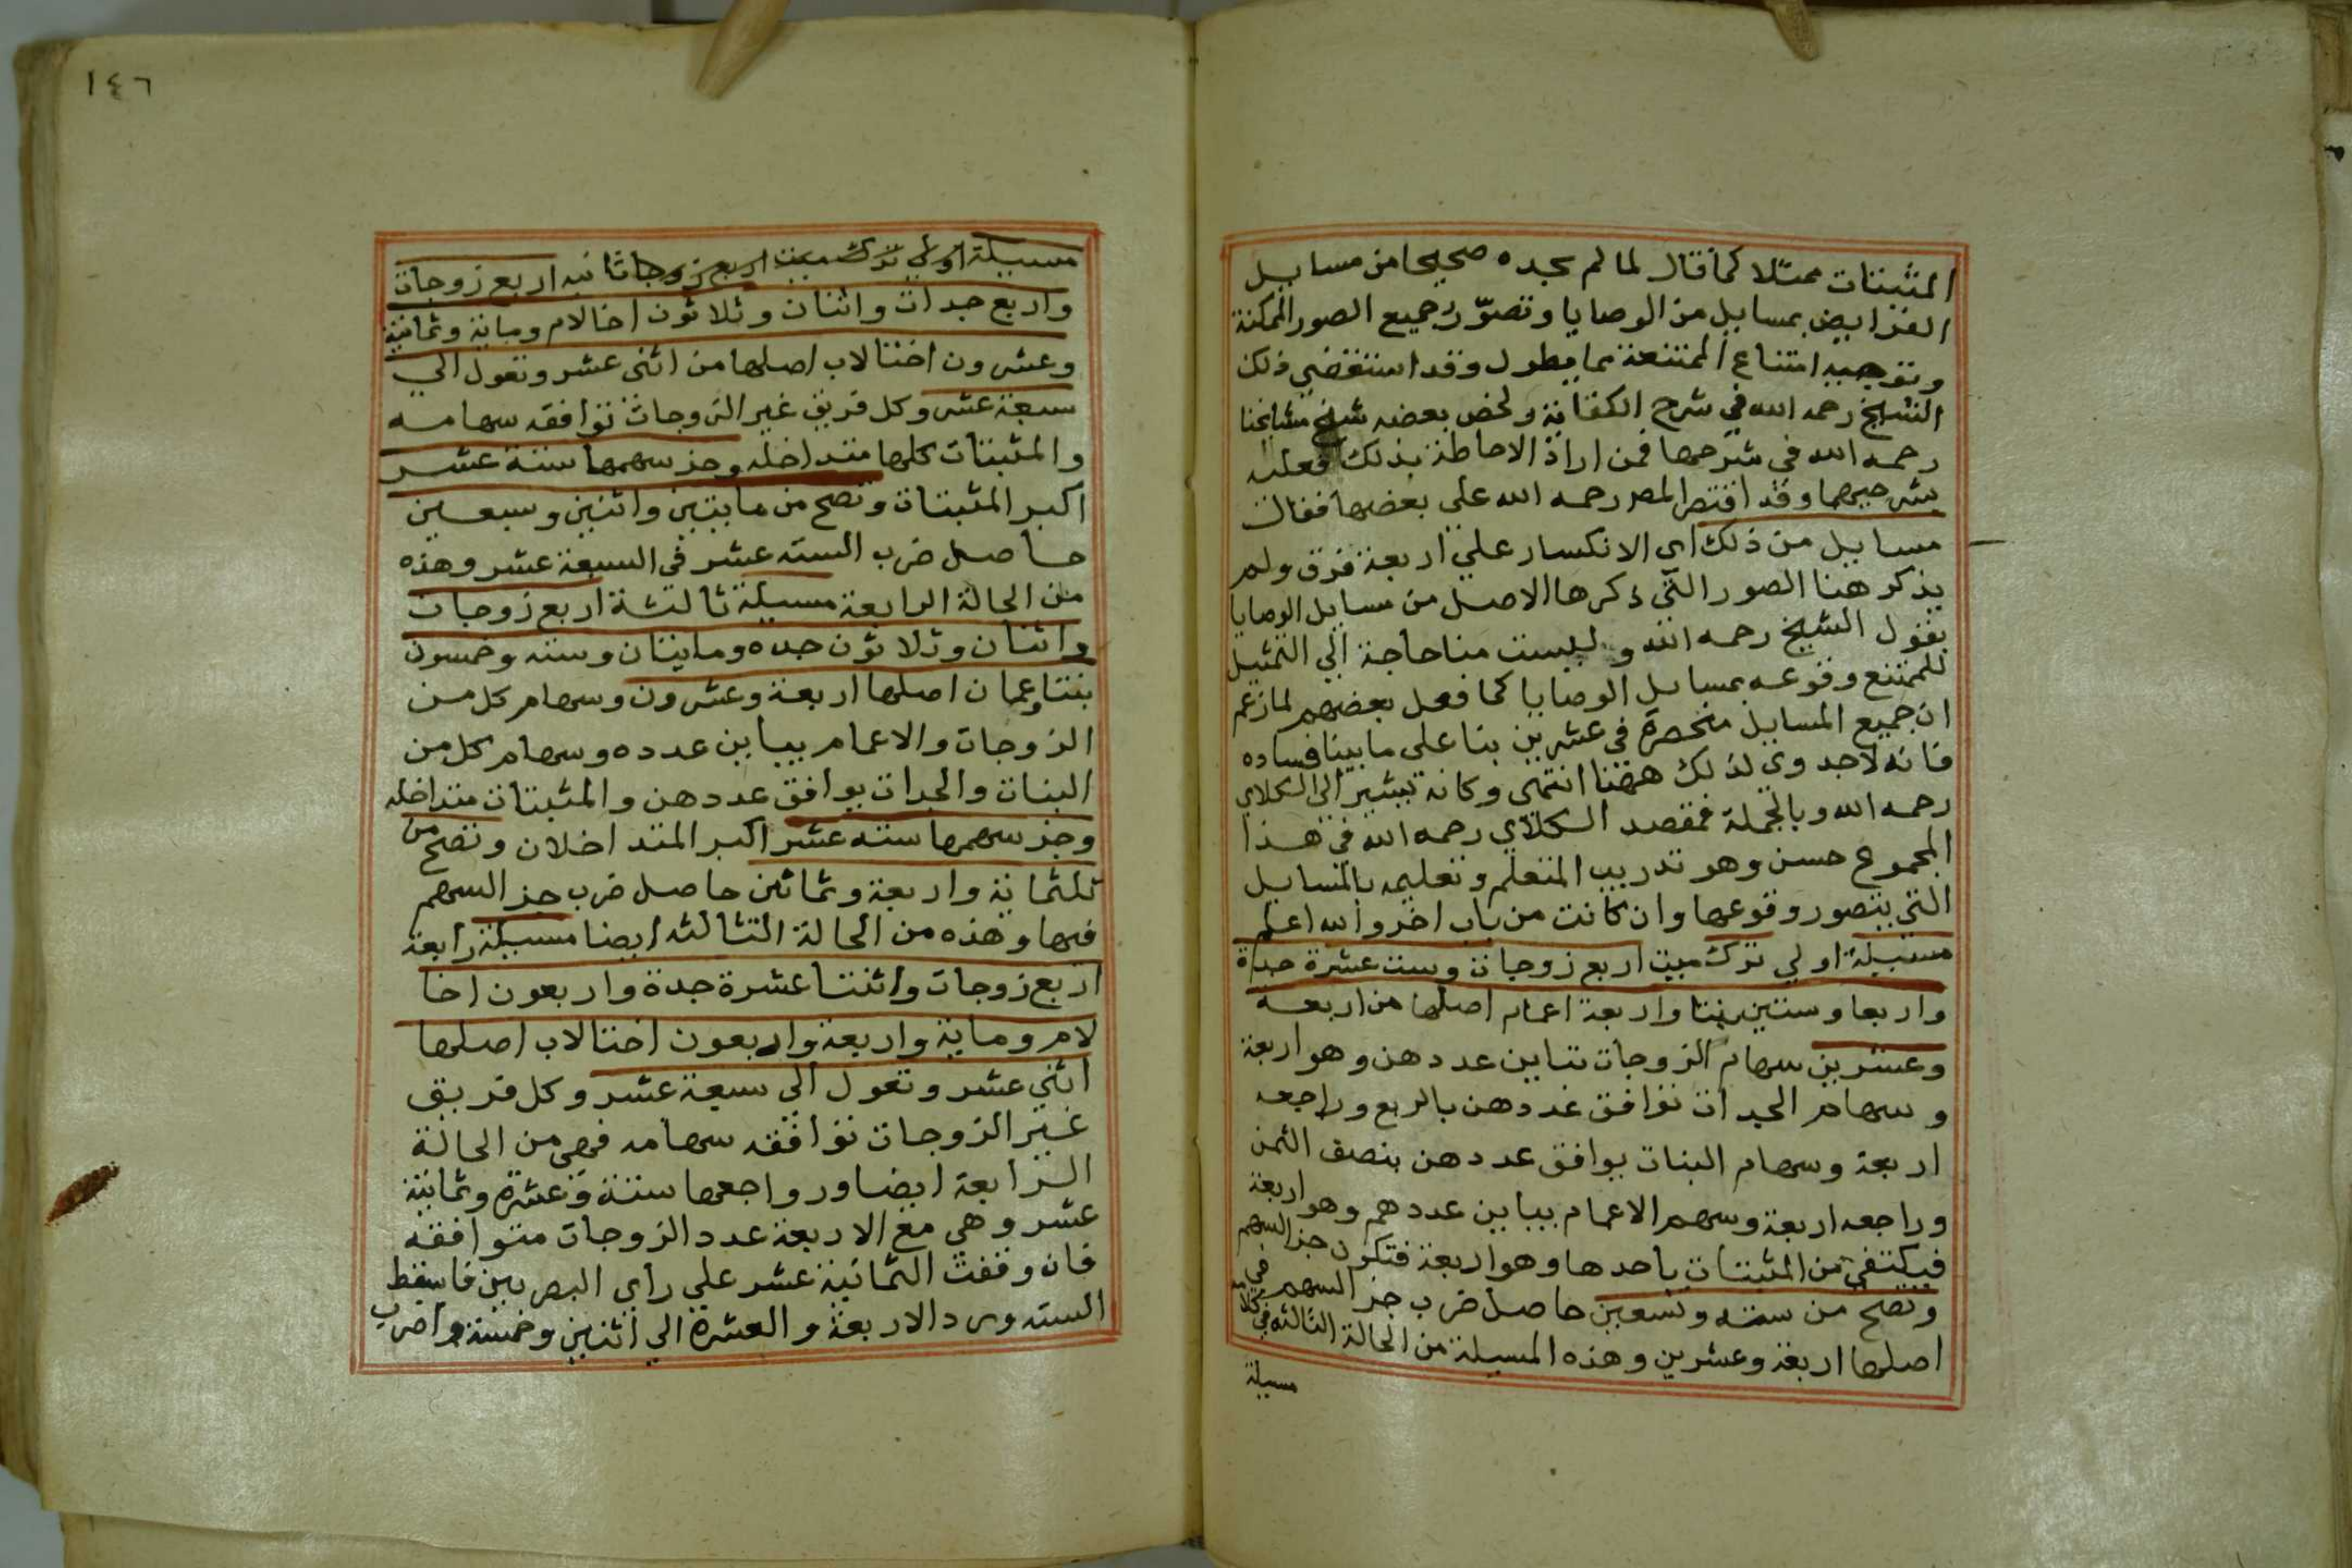 المثبتات ممثلا كما قال لما لم يجده صحيحا من مسايل
الفرايض بمسايل من الوصايا وتصوّر جميع الصور الممكنة
وتوجيه امتناع الممتنعة مما يطول وقد استقضي ذلك
الشيخ رحمه الله في شرح الكفاية ولخص بعضه شيخ مشايخنا
رحمه الله في شرحها فمن اراد الاحاطة بذلك فعليه
بشرحيهما وقد اقتصر المص رحمه الله علي بعضها فقال
مسايل من ذلك اي الانكسار علي اربعة فرق ولم
يذكر هنا الصور التي ذكرها الاصل من مسايل الوصايا
بقول الشيخ رحمه الله وليست منا حاجة الي التمثيل
للممتنع وقوعه بمسايل الوصايا كما فعل بعضهم لما زعم
ان جميع المسايل منحصرة في عشرين بنا على ما بينا فساده
فانه لا جدوي لذلك ههنا انتهى وكانه يشير الى الكلاي
رحمه الله وبالجملة فمقصد الكلاي رحمه الله في هذا
المجموع حسن وهو تدريب المتعلم وتعليمه بالمسايل
التي يتصور وقوعها وان كانت من باب اخر والله اعلم
مسيلة اولي ترك ميت اربع زوجات وست عشرة جدة
واربعا وستين بنتا واربعة اعمام اصلها من اربعة
وعشرين سهام الزوجات تباين عددهن وهو اربعة
وسهام الجدات توافق عددهن بالربع وراجعه
اربعة وسهام البنات يوافق عددهن بنصف الثمن
وراجعه اربعة وسهم الاعمام يباين عددهم وهو اربعة
فيكتفي من المثبتات باحدها وهو اربعة فتكون جز السهم
وتصح من ستة وتسعين حاصل ضرب جز السهم في
اصلها اربعة وعشرين وهذه المسيلة من الحالة الثالثه في
مسيلة
١٤٦
مسيلة اولي ترك ميت اربع زوجات ثانيه اربع زوجات
واربع جدات واثنان وثلاثون اخا لام وماية وثمانية
وعشرون اختا لاب اصلها من اثنى عشر وتعول الي
سبعة عشر وكل فريق غير الزوجات توافقه سهامه
والمثبتات كلها متداخله وجز سهمها ستة عشر
اكبر المثبتات وتصح من مايتين واثنين وسبعين
حاصل ضرب الستة عشر في السبعة عشر وهذه
من الحالة الرابعة مسيلة ثالثة اربع زوجات
واثنان وثلاثون جده ومايتان وسته وخمسون
بنتا وعمان اصلها اربعة وعشرون وسهام كل من
الزوجات والاعمام يباين عدده وسهام كل من
البنات والجدات يوافق عددهن والمثبتات متداخله
وجز سهمها سته عشر اكبر المتداخلان وتصح من
ثلثماية واربعة وثمانين حاصل ضرب جز السهم
فيها وهذه من الحالة الثالثه ايضا مسيلة رابعة
اربع زوجات واثنتا عشرة جدة واربعون اخا
لام وماية واربعة واربعون اختا لاب اصلها
اثني عشر وتعول الى سبعة عشر وكل فريق
غير الزوجات توافقه سهامه فهي من الحالة
الرابعة ايضا ورواجعها ستة وعشرة وثمانية
عشر وهي مع الاربعة عدد الزوجات متوافقه
فان وقفت الثمانية عشر علي راي البصريين فاسقط
السته ورد الاربعة والعشرة الي اثنين وخمسة واضرب